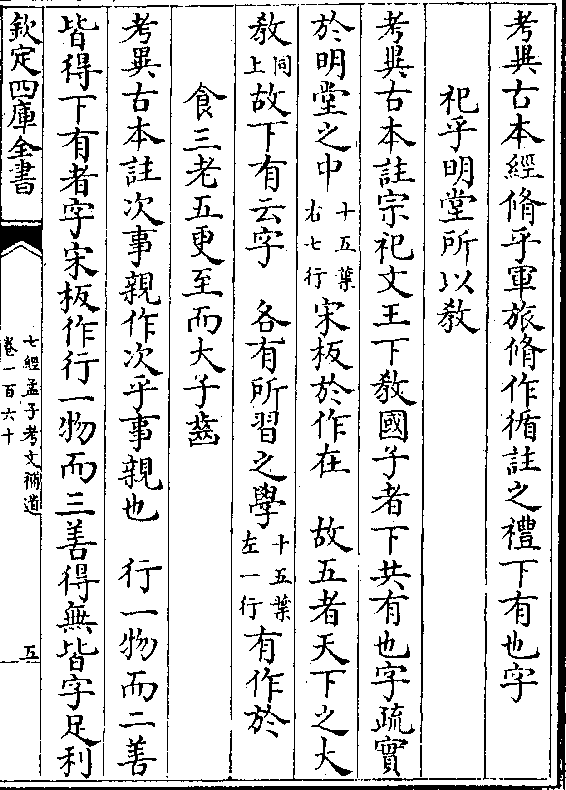 考異古本經脩乎軍旅脩作循註之禮下有也字
祀乎明堂所以教
考異古本註宗祀文王下教國子者下共有也字疏實
於明堂之中十五葉右七行宋板於作在　故五者天下之大
教同上故下有云字　各有所習之學十五葉左一行有作於
食三老五更至而大子齒
考異古本註次事親作次乎事親也　行一物而二善
皆得下有者字宋板作行一物而三善得無皆字足利
欽定四庫全書
七經孟子考文補遺
卷一百六十
五